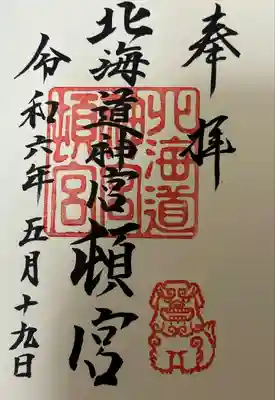 奉拝
北海道神宮頓宮
令和六年五月十九日
北海道神宮頓宮